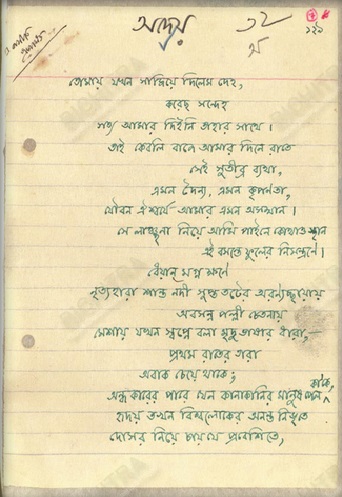 অদেয়
৩২
১২১
তোমায় যখন সাজিয়ে দিলেম দেহ,
করেছ সন্দেহ
সত্য আমার দিইনি তাহার সাথে।
তাই কেবলি বাজে আমার দিনে রাতে
সেই সুতীব্র ব্যথা,
এমন দৈন্য, এমন কৃপণতা,
যৌবন ঐশ্বর্যে আমার এমন অসম্মান।
সে লাঞ্ছনা নিয়ে আমি পাইনে কোথাও স্থান
এই বসন্তে ফুলের নিমন্ত্রণে।
ধেয়ান মগ্ন ক্ষণে
নৃত্যহারা শান্ত নদী সুপ্ত তটের অরণ্যচ্ছায়ায়
অবসন্ন পল্লী চেতনায়
মেশায় যখন স্বপ্নে বলা মৃদু ভাষার ধারা,
প্রথম রাতের তারা
অবাক চেয়ে থাকে;
অন্ধকারের পারে যেন কানাকানির মানুষ পেল কাকে,
হৃদয় তখন বিশ্বলোকের অনন্ত নিভৃতে
দোসর নিয়ে চায় যে প্রবেশিতে,